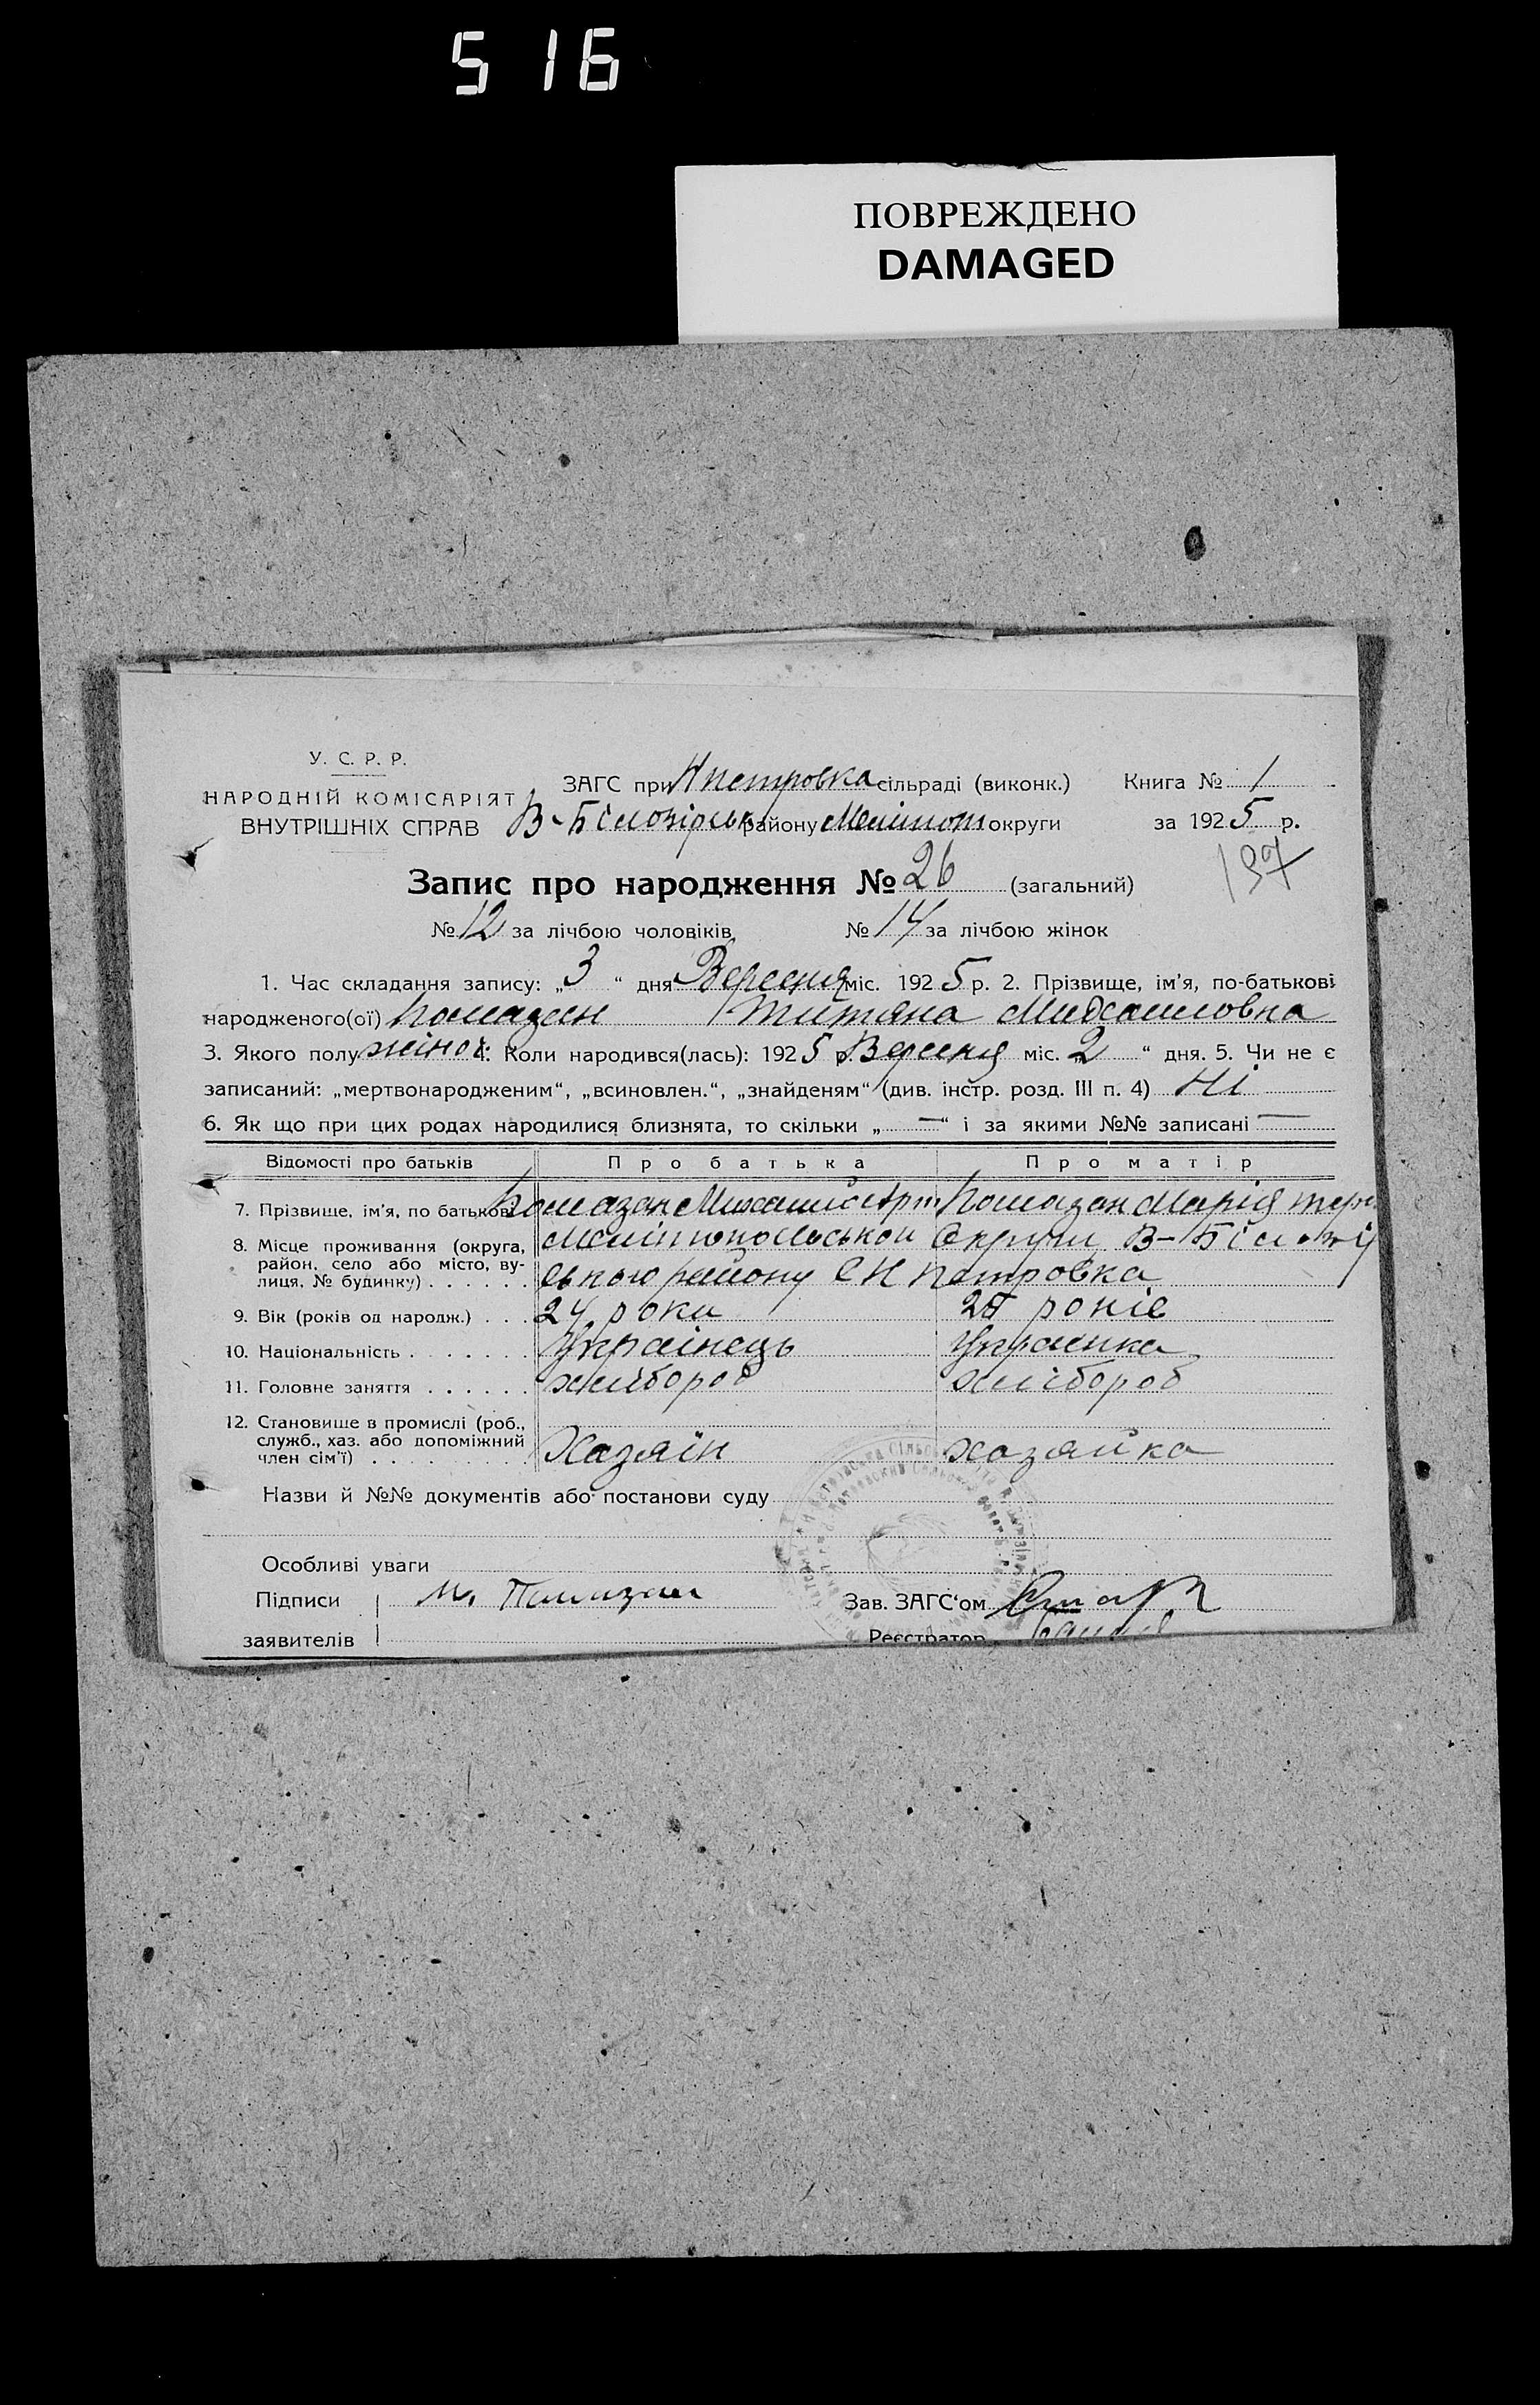 516
ПОВРЕЖДЕНО
DAMAGED
У. С. Р. Р.
НАРОДНІЙ КОМІСАРІЯТ
ВНУТРІШНІХ СПРАВ
ЗАГС при Нпетровка сільраді (виконк.) Книга № 1
В-Білозірськ району Мелітоп округи за 1925 р.
197
Запис про народження № 26 (загальний)
№ 12 за лічбою чоловіків № 14 за лічбою жінок
1. Час складання запису: „3“ дня Вересня міс. 1925 р. 2. Прізвище, ім'я, по-батькові
народженого(ої) Помазан Титяна Михаиловна
3. Якого полу жіноч. 4. Коли народився(лась): 1925 р. Вересня міс. „2“ дня. 5. Чи не є
записаний: „мертвонародженим“, „всиновлен.“, „знайденям“ (див. інстр. розд. III п. 4) Ні
6. Як що при цих родах народилися близнята, то скільки „—“ і за якими №№ записані —
Відомості про батьків Про батька Про матір
7. Прізвище, ім'я, по батькові Помазан Михаил Арт Помазан Марія
8. Місце проживання (округа, район, село або місто, вулиця, № будинку) . . . . . . Мелітопольськои Округи В-Білозір
ського району с Н Петровка
9. Вік (років од народж.) . . . 24 роки 25 років
10. Національність . . . . . . . Українець Украинка
11. Головне заняття . . . . . . хлібороб хлібороб
12. Становище в промислі (роб., служб., хаз. або допоміжний член сім'ї) . . . . . . . . . Хазяїн хазяйка
Назви й №№ документів або постанови суду
Особливі уваги
Підписи М. Помазан Зав. ЗАГС'ом
заявителів Реєстратор